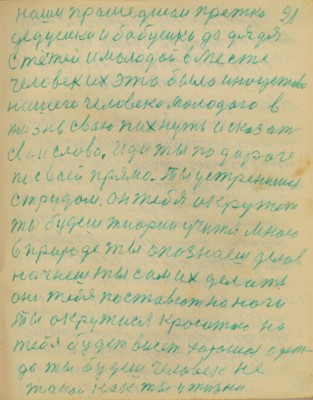 наши прошедшии предки 91
дедушки и бабушки да дядя
с тётей и молодой в месте
человек их это было иногдство
нашего человека молодого в
жизнь сваю пихнуть и сказат
сваи слова. Иди ты по дароге
по своей прямо. Ты устремися
с трудом, он тебя окружит
ты будеш учится много
в природе ты опознаеш делов
начнеш ты сам их делать
они тебя поставют на ноги
Ты окружися красотою на
тебя будет висет хорошая одеж-
да ты будеш человек не
такой как ты у жизни